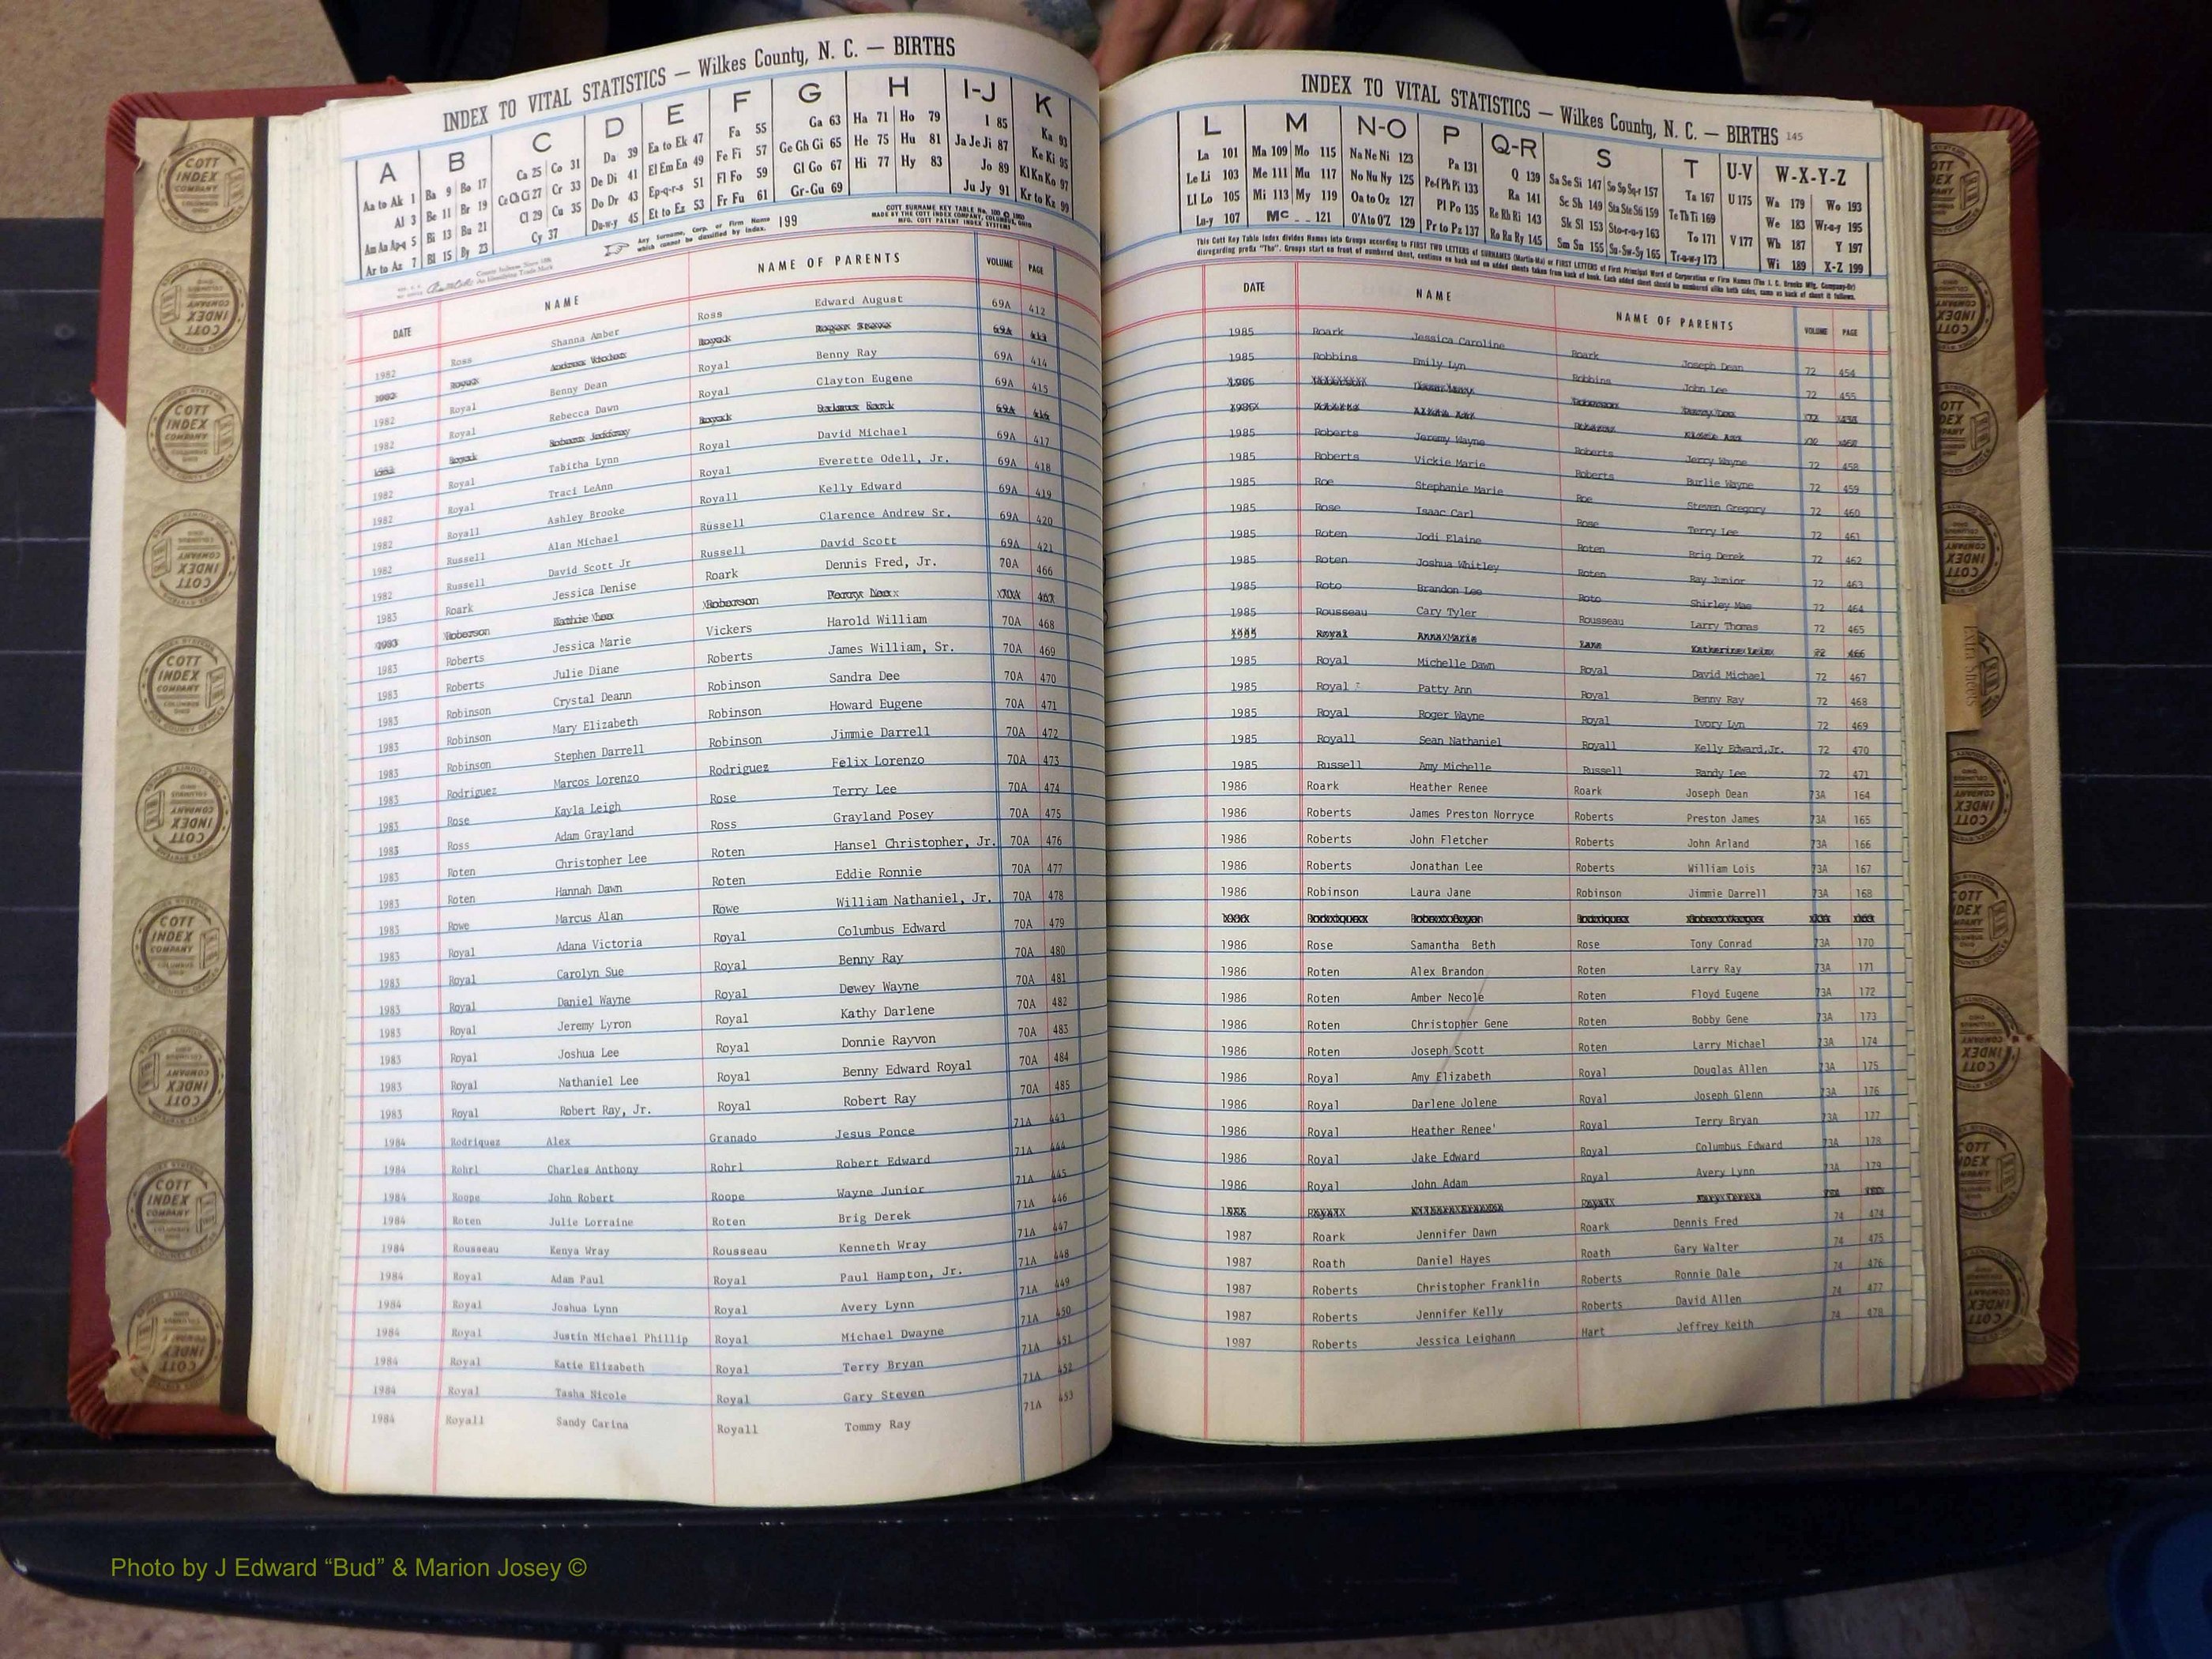 INDEX TO VITAL STATISTICS — Wilkes County, N. C. — BIRTHS
A B C D E F G H I-J K
Aa to Ak 1 Ba 9 Bo 17 Ca 25 Co 31 Da 39 Ea to Ek 47 Fa 55 Ga 63 Ha 71 Ho 79 I 85 Ka 93
Al 3 Be 11 Br 19 Ce Ch Ci 27 Cr 33 De Di 41 El Em En 49 Fe Fi 57 Ge Gh Gi 65 He 75 Hu 81 Ja Je Ji 87 Ke Ki 95
Am An Ap-q 5 Bi 13 Bu 21 Cl 29 Cu 35 Do Dr 43 Ep-q-r-s 51 Fl Fo 59 Gl Go 67 Hi 77 Hy 83 Jo 89 Kl Kn Ko 97
Ar to Az 7 Bl 15 By 23 Cy 37 Du-w-y 45 Et to Ez 53 Fr Fu 61 Gr-Gu 69 Ju Jy 91 Kr to Kz 99
Any Surname, Corp. or Firm Name which cannot be classified by Index. 199
DATE NAME NAME OF PARENTS VOLUME PAGE
1982 Ross Shanna Amber Ross Edward August 69A 412
1982 Royal Benny Dean Royal Benny Ray 69A 414
1982 Royal Rebecca Dawn Royal Clayton Eugene 69A 415
1982 Royal Tabitha Lynn Royal David Michael 69A 417
1982 Royal Traci LeAnn Royal Everette Odell, Jr. 69A 418
1982 Royall Ashley Brooke Royall Kelly Edward 69A 419
1982 Russell Alan Michael Russell Clarence Andrew Sr. 69A 420
1982 Russell David Scott Jr Russell David Scott 69A 421
1983 Roark Jessica Denise Roark Dennis Fred, Jr. 70A 466
1983 Roberts Jessica Marie Vickers Harold William 70A 468
1983 Roberts Julie Diane Roberts James William, Sr. 70A 469
1983 Robinson Crystal Deann Robinson Sandra Dee 70A 470
1983 Robinson Mary Elizabeth Robinson Howard Eugene 70A 471
1983 Robinson Stephen Darrell Robinson Jimmie Darrell 70A 472
1983 Rodriguez Marcos Lorenzo Rodriguez Felix Lorenzo 70A 473
1983 Rose Kayla Leigh Rose Terry Lee 70A 474
1983 Ross Adam Grayland Ross Grayland Posey 70A 475
1983 Roten Christopher Lee Roten Hansel Christopher, Jr. 70A 476
1983 Roten Hannah Dawn Roten Eddie Ronnie 70A 477
1983 Rowe Marcus Alan Rowe William Nathaniel, Jr. 70A 478
1983 Royal Adana Victoria Royal Columbus Edward 70A 479
1983 Royal Carolyn Sue Royal Benny Ray 70A 480
1983 Royal Daniel Wayne Royal Dewey Wayne 70A 481
1983 Royal Jeremy Lyron Royal Kathy Darlene 70A 482
1983 Royal Joshua Lee Royal Donnie Rayvon 70A 483
1983 Royal Nathaniel Lee Royal Benny Edward Royal 70A 484
1983 Royal Robert Ray, Jr. Royal Robert Ray 70A 485
1984 Rodriquez Alex Granado Jesus Ponce 71A 443
1984 Rohrl Charles Anthony Rohrl Robert Edward 71A 444
1984 Roope John Robert Roope Wayne Junior 71A 445
1984 Roten Julie Lorraine Roten Brig Derek 71A 446
1984 Rousseau Kenya Wray Rousseau Kenneth Wray 71A 447
1984 Royal Adam Paul Royal Paul Hampton, Jr. 71A 448
1984 Royal Joshua Lynn Royal Avery Lynn 71A 449
1984 Royal Justin Michael Phillip Royal Michael Dwayne 71A 450
1984 Royal Katie Elizabeth Royal Terry Bryan 71A 451
1984 Royal Tasha Nicole Royal Gary Steven 71A 452
1984 Royall Sandy Carina Royall Tommy Ray 71A 453
INDEX TO VITAL STATISTICS — Wilkes County, N. C. — BIRTHS 145
L M N-O P Q-R S T U-V W-X-Y-Z
La 101 Ma 109 Mo 115 Na Ne Ni 123 Pa 131 Q 139 Sa Se Si 147 So Sp Sq-r 157 Ta 167 U 175 Wa 179 Wo 193
Le Li 103 Me 111 Mu 117 No Nu Ny 125 Pe-f Ph Pi 133 Ra 141 Sc Sh 149 Sta Ste Sti 159 Te Th Ti 169 We 183 Wr-u-y 195
Ll Lo 105 Mi 113 My 119 Oa to Oz 127 Pl Po 135 Re Rh Ri 143 Sk Sl 153 Sto-r-u-y 163 To 171 V 177 Wh 187 Y 197
Lu-y 107 Mc 121 O'A to O'Z 129 Pr to Pz 137 Ro Ru Ry 145 Sm Sn 155 Su-Sw-Sy 165 Tr-u-w-y 173 Wi 189 X-Z 199
DATE NAME NAME OF PARENTS VOLUME PAGE
1985 Roark Jessica Caroline Roark Joseph Dean 72 454
1985 Robbins Emily Lyn Robbins John Lee 72 455
1985 Roberts Jeremy Wayne Roberts Jerry Wayne 72 458
1985 Roberts Vickie Marie Roberts Burlie Wayne 72 459
1985 Roe Stephanie Marie Roe Steven Gregory 72 460
1985 Rose Isaac Carl Rose Terry Lee 72 461
1985 Roten Jodi Elaine Roten Brig Derek 72 462
1985 Roten Joshua Whitley Roten Ray Junior 72 463
1985 Roto Brandon Lee Roto Shirley Mae 72 464
1985 Rousseau Cary Tyler Rousseau Larry Thomas 72 465
1985 Royal Michelle Dawn Royal David Michael 72 467
1985 Royal Patty Ann Royal Benny Ray 72 468
1985 Royal Roger Wayne Royal Ivory Lyn 72 469
1985 Royall Sean Nathaniel Royall Kelly Edward,Jr. 72 470
1985 Russell Amy Michelle Russell Randy Lee 72 471
1986 Roark Heather Renee Roark Joseph Dean 73A 164
1986 Roberts James Preston Norryce Roberts Preston James 73A 165
1986 Roberts John Fletcher Roberts John Arland 73A 166
1986 Roberts Jonathan Lee Roberts William Lois 73A 167
1986 Robinson Laura Jane Robinson Jimmie Darrell 73A 168
1986 Rose Samantha Beth Rose Tony Conrad 73A 170
1986 Roten Alex Brandon Roten Larry Ray 73A 171
1986 Roten Amber Necole Roten Floyd Eugene 73A 172
1986 Roten Christopher Gene Roten Bobby Gene 73A 173
1986 Roten Joseph Scott Roten Larry Michael 73A 174
1986 Royal Amy Elizabeth Royal Douglas Allen 73A 175
1986 Royal Darlene Jolene Royal Joseph Glenn 73A 176
1986 Royal Heather Renee' Royal Terry Bryan 73A 177
1986 Royal Jake Edward Royal Columbus Edward 73A 178
1986 Royal John Adam Royal Avery Lynn 73A 179
1987 Roark Jennifer Dawn Roark Dennis Fred 74 474
1987 Roath Daniel Hayes Roath Gary Walter 74 475
1987 Roberts Christopher Franklin Roberts Ronnie Dale 74 476
1987 Roberts Jennifer Kelly Roberts David Allen 74 477
1987 Roberts Jessica Leighann Hart Jeffrey Keith 74 478
Extra Sheets
COTT INDEX COMPANY
Photo by J Edward “Bud” & Marion Josey ©